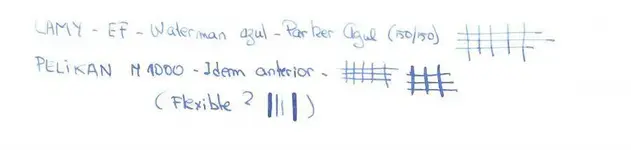 LAMY - EF - Waterman azul - Parker Azul (150/150)
PELIKAN M1000 - Idem anterior -
(Flexible ? )